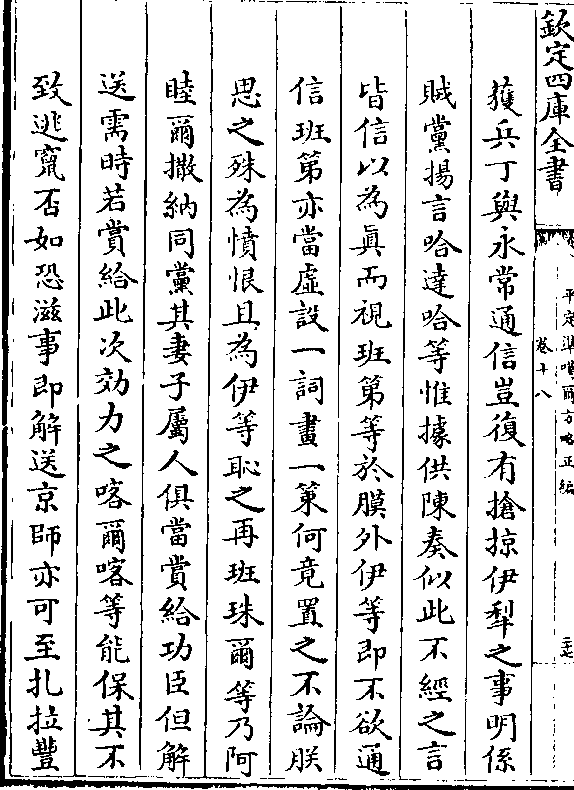 欽定四庫全書
平定準噶爾方略正編
卷十八
獲兵丁與永常通信豈復有搶掠伊犂之事明係
賊黨揚言哈達哈等惟據供陳奏似此不經之言
皆信以為真而視班第等於膜外伊等即不欲通
信班第亦當虛設一詞畫一策何竟置之不論朕
思之殊為憤恨且為伊等恥之再班珠爾等乃阿
睦爾撒納同黨其妻子屬人俱當賞給功臣但解
送需時若賞給此次効力之喀爾喀等能保其不
致逃竄否如恐滋事即解送京師亦可至扎拉豐